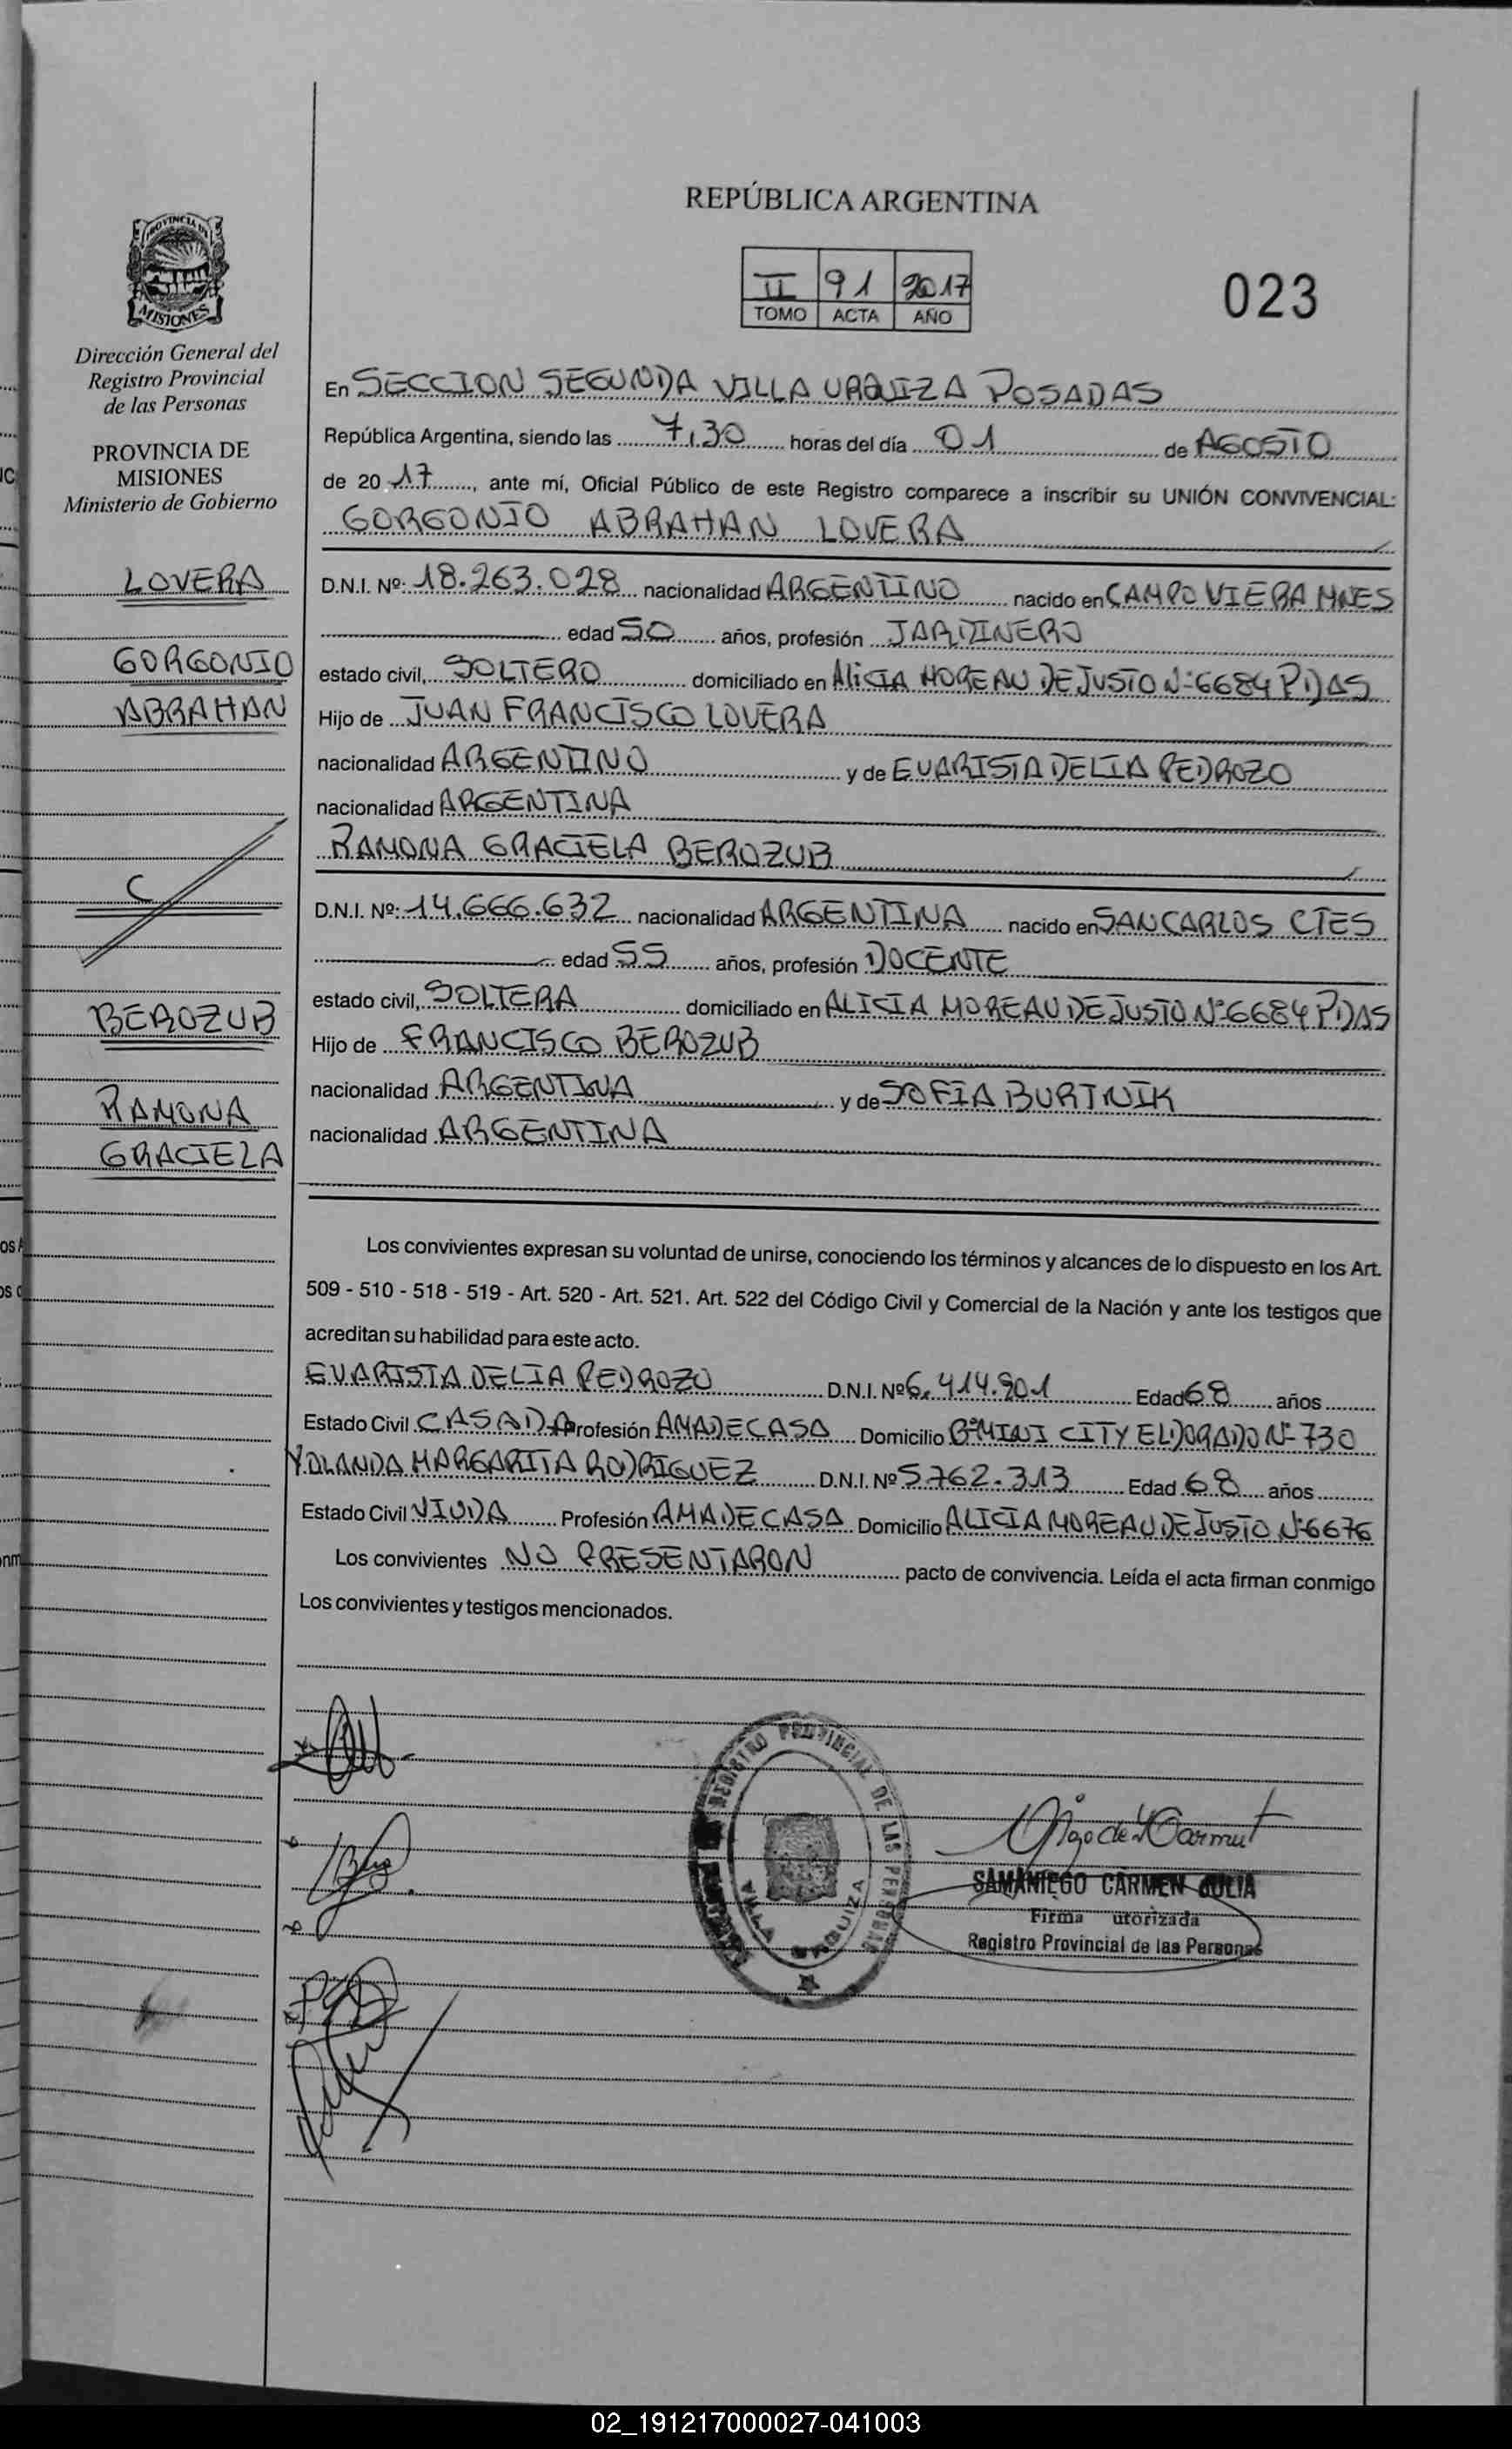 REPÚBLICA ARGENTINA
II 91 2017
TOMO ACTA AÑO
023
PROVINCIA DE
MISIONES
Dirección General del
Registro Provincial
de las Personas
PROVINCIA DE
MISIONES
Ministerio de Gobierno
LOVERA
GORGONIO
ABRAHAN
C
BEROZUB
RAMONA
GRACIELA
En SECCION SEGUNDA VILLA URQUIZA POSADAS
República Argentina, siendo las 7,30 horas del día 01 de AGOSTO
de 2017, ante mí, Oficial Público de este Registro comparece a inscribir su UNIÓN CONVIVENCIAL:
GORGONIO ABRAHAN LOVERA
D.N.I. Nº: 18.263.028 nacionalidad ARGENTINO nacido en CAMPO VIERA MNES
edad 50 años, profesión JARDINERO
estado civil, SOLTERO domiciliado en ALICIA MOREAU DE JUSTO Nº 6684 PDAS
Hijo de JUAN FRANCISCO LOVERA
nacionalidad ARGENTINO y de EVARISTA DELIA PEDROZO
nacionalidad ARGENTINA
RAMONA GRACIELA BEROZUB
D.N.I. Nº: 14.666.632 nacionalidad ARGENTINA nacido en SAN CARLOS CTES
edad 55 años, profesión DOCENTE
estado civil, SOLTERA domiciliado en ALICIA MOREAU DE JUSTO Nº 6684 PDAS
Hijo de FRANCISCO BEROZUB
nacionalidad ARGENTINA y de SOFIA BURTNIK
nacionalidad ARGENTINA
Los convivientes expresan su voluntad de unirse, conociendo los términos y alcances de lo dispuesto en los Art.
509 - 510 - 518 - 519 - Art. 520 - Art. 521. Art. 522 del Código Civil y Comercial de la Nación y ante los testigos que
acreditan su habilidad para este acto.
EVARISTA DELIA PEDROZO D.N.I. Nº 6.414.901 Edad 68 años
Estado Civil CASADA Profesión AMA DE CASA Domicilio Bº MINI CITY ELDORADO Nº 730
YOLANDA MARGARITA RODRIGUEZ D.N.I. Nº 5.762.313 Edad 68 años
Estado Civil VIUDA Profesión AMA DE CASA Domicilio ALICIA MOREAU DE JUSTO Nº 6676
Los convivientes NO PRESENTARON pacto de convivencia. Leída el acta firman conmigo
Los convivientes y testigos mencionados.
REGISTRO PROVINCIAL DE LAS PERSONAS
VILLA URQUIZA
SAMANIEGO CARMEN JULIA
Firma utorizada
Registro Provincial de las Personas
02_191217000027-041003